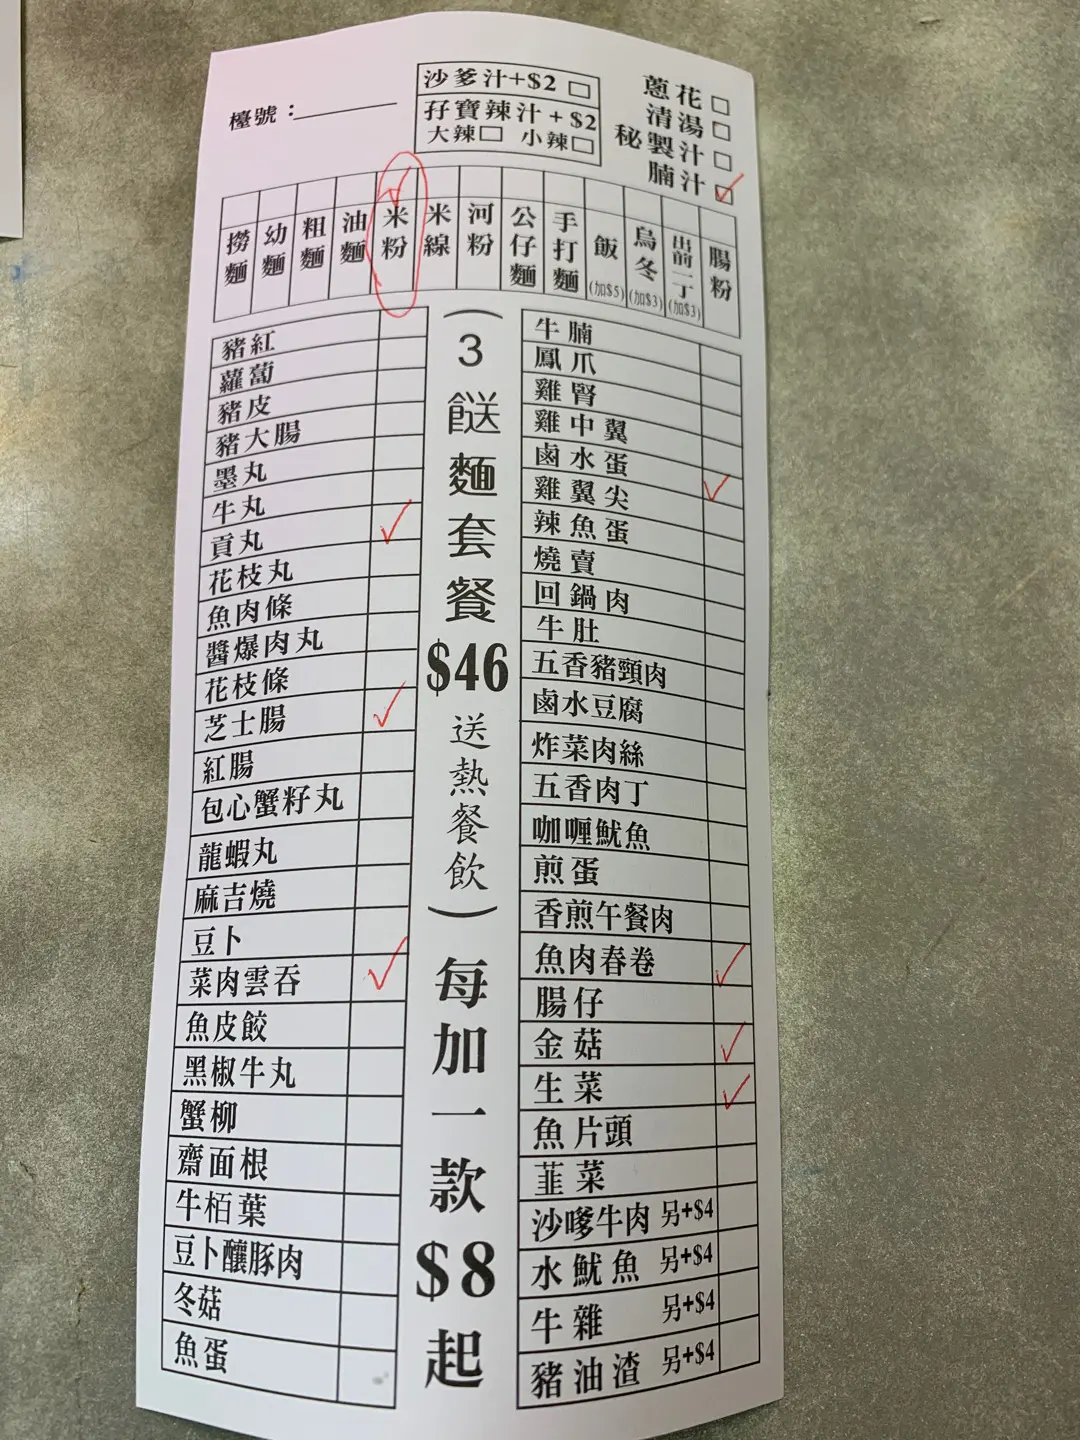 檯號：
沙爹汁+$2 □
孖寶辣汁+$2
大辣□ 小辣□
蔥花 □
清湯 □
秘製汁 □
腩汁 □
撈麵
幼麵
粗麵
油麵
米粉
米線
河粉
公仔麵
手打麵
飯(加$5)
烏冬(加$3)
出前一丁(加$3)
腸粉
豬紅
蘿蔔
豬皮
豬大腸
墨丸
牛丸
貢丸
花枝丸
魚肉條
醬爆肉丸
花枝條
芝士腸
紅腸
包心蟹籽丸
龍蝦丸
麻吉燒
豆卜
菜肉雲吞
魚皮餃
黑椒牛丸
蟹柳
齋面根
牛栢葉
豆卜釀豚肉
冬菇
魚蛋
（3餸麵套餐$46送熱餐飲）每加一款$8起
牛腩
鳳爪
雞腎
雞中翼
鹵水蛋
雞翼尖
辣魚蛋
燒賣
回鍋肉
牛肚
五香豬頸肉
鹵水豆腐
炸菜肉絲
五香肉丁
咖喱魷魚
煎蛋
香煎午餐肉
魚肉春卷
腸仔
金菇
生菜
魚片頭
韮菜
沙嗲牛肉 另+$4
水魷魚 另+$4
牛雜 另+$4
豬油渣 另+$4